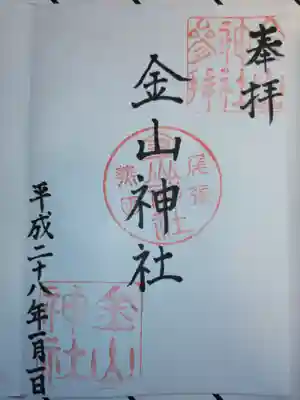 奉拝
金山神社
平成二十八年一月一日
尾張
熱田
金山
神社